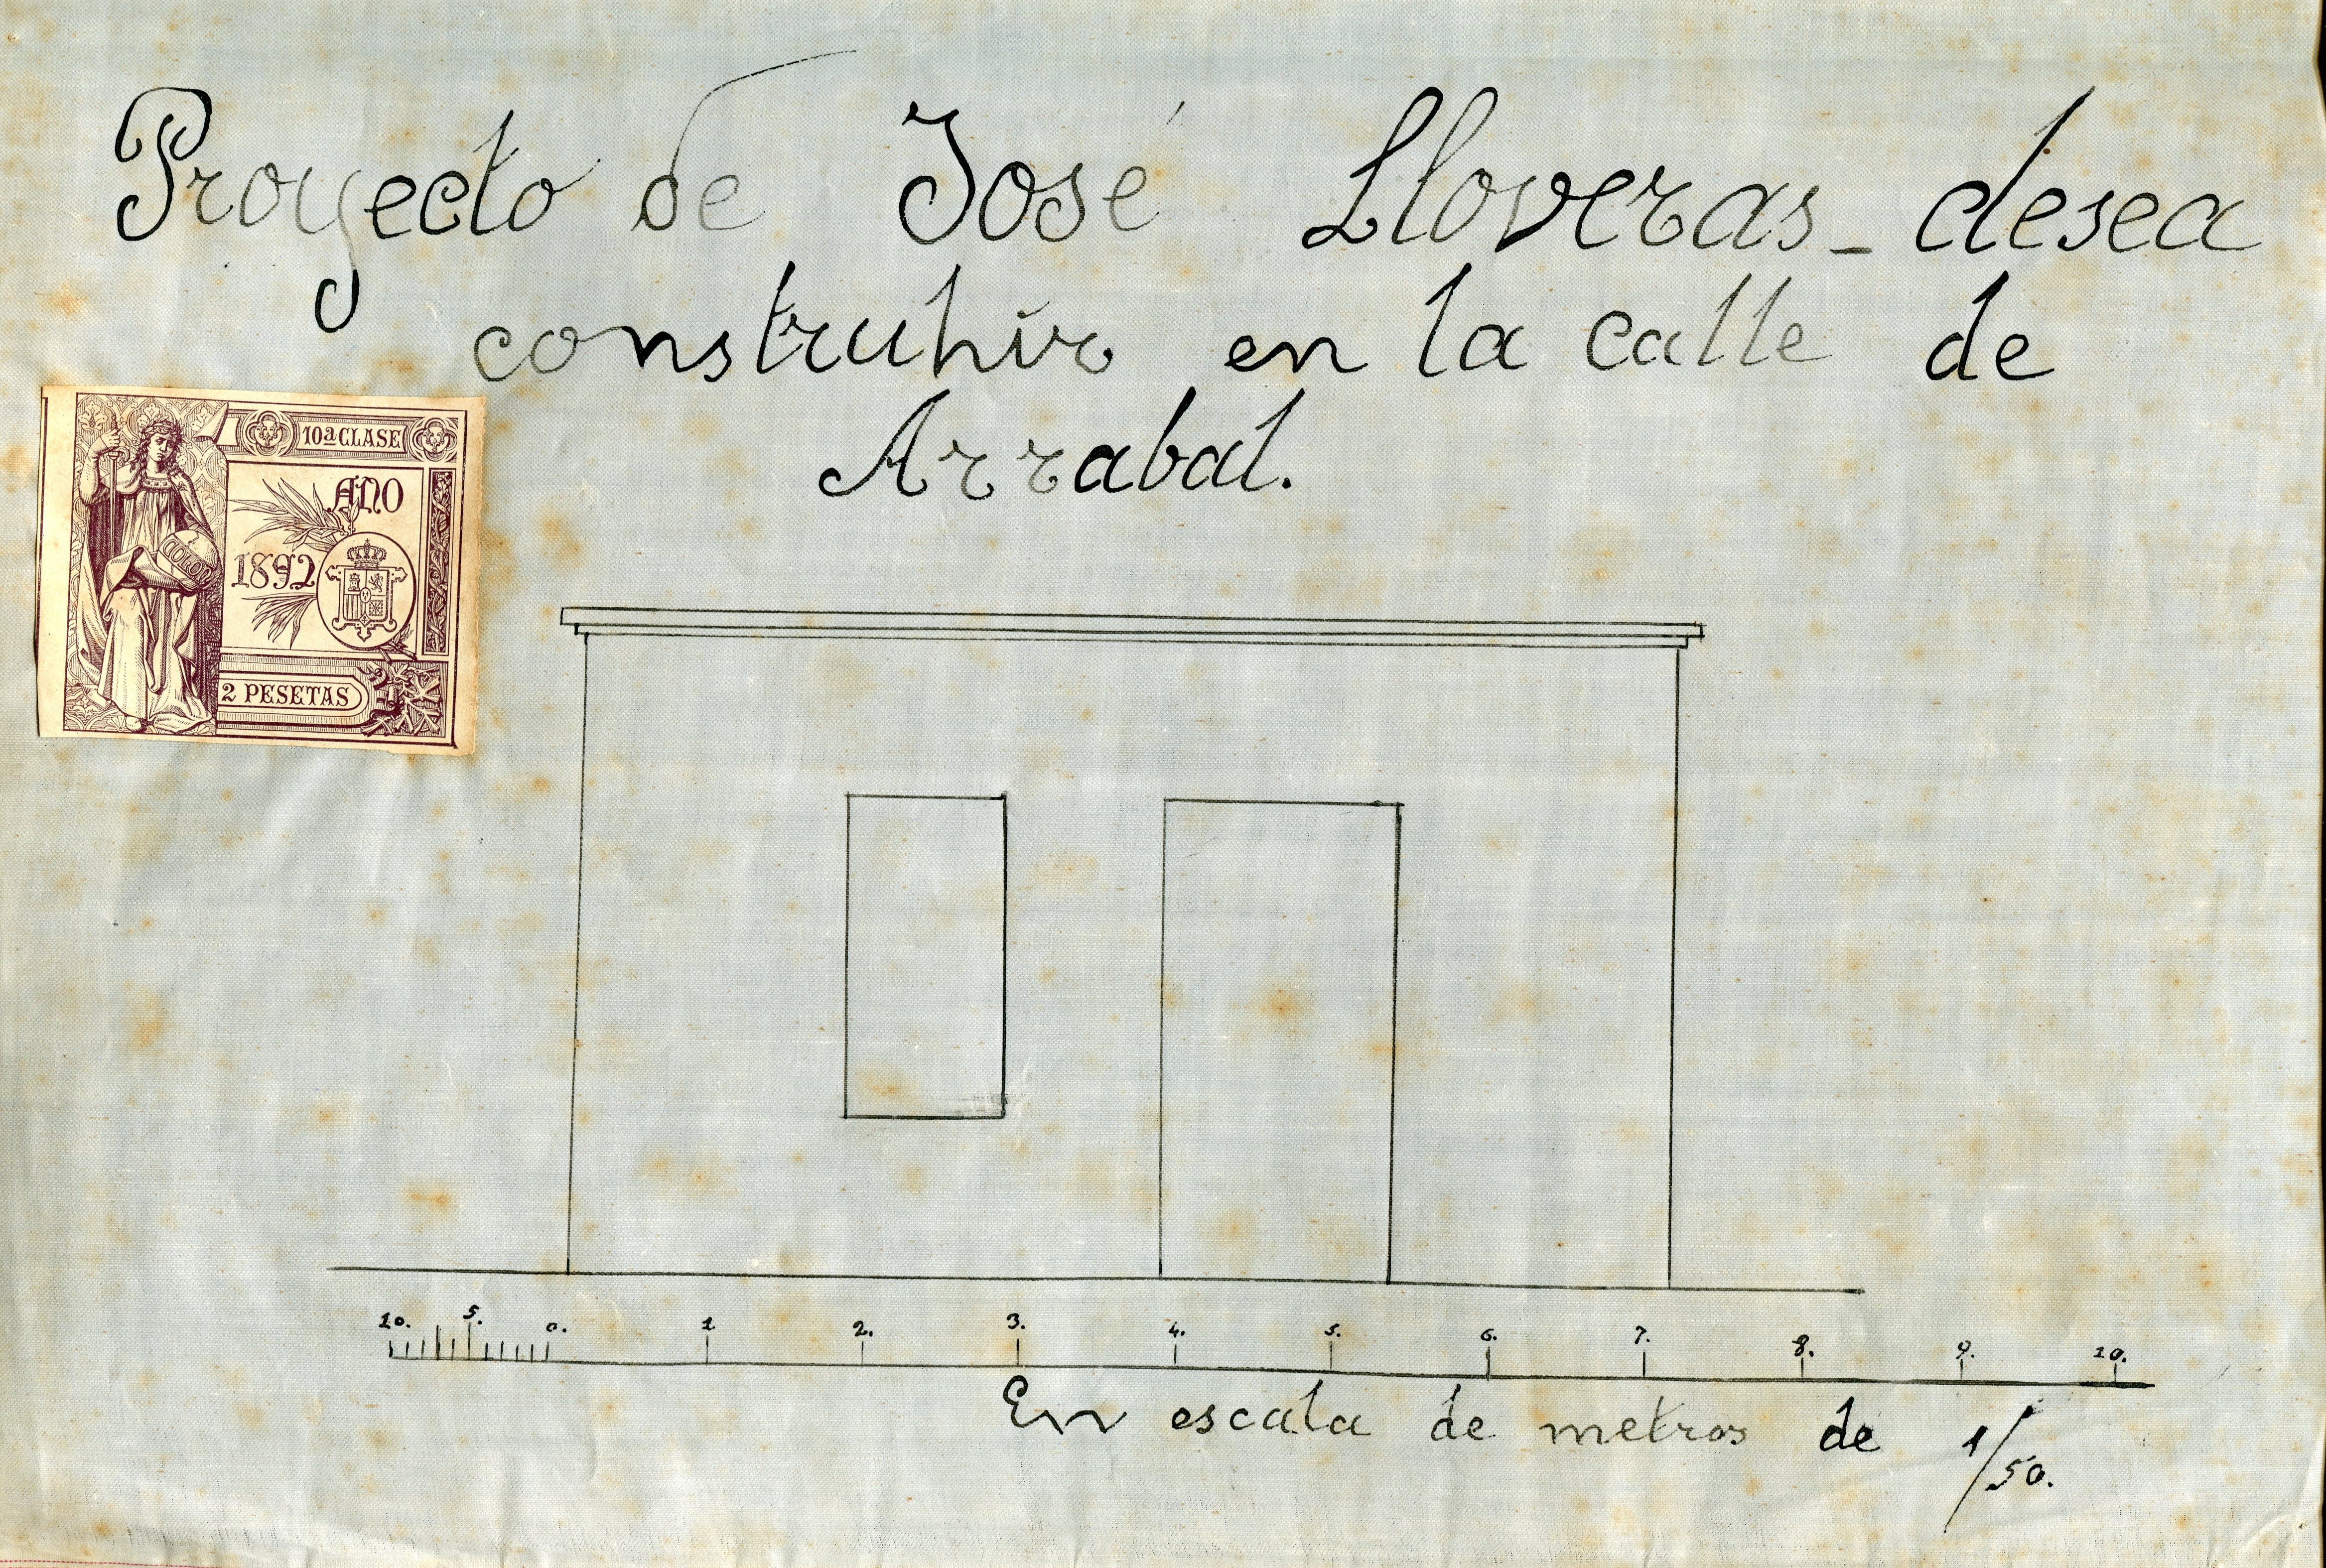 Proyecto de José Lloveras - desea
construhir en la calle de
Arrabal.
10ª CLASE
AÑO
1892
COLON
2 PESETAS
10. 5. 0. 1 2. 3. 4. 5. 6. 7. 8. 9. 10.
En escala de metros de 1/50.